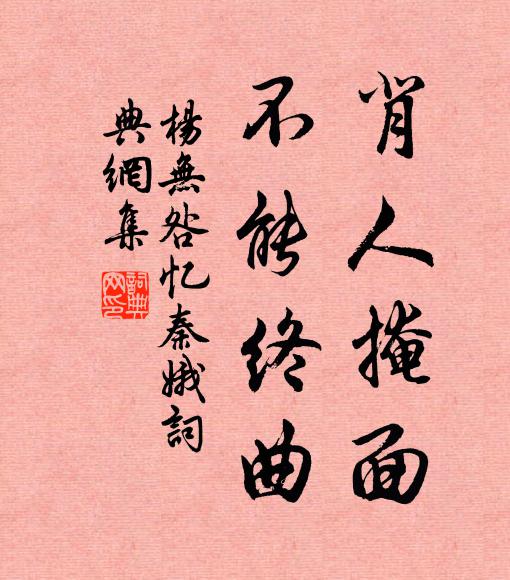 背人掩面
不能终曲
楊無咎忆秦娥詞
典網集
詞典
网印